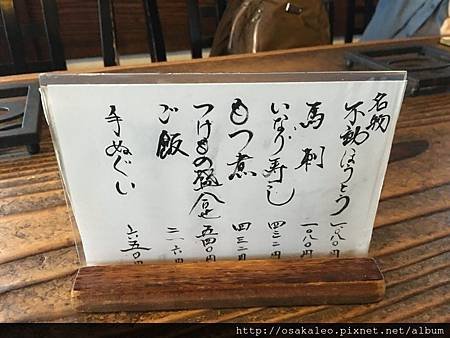 名物
不動ほうとう 一〇八〇円
馬刺 一〇八〇円
いなり寿し 四三二円
もつ煮 四三二円
つけもの盛合せ 五四〇円
ご飯 二一六円
手ぬぐい 六五〇円
http://osakaleo.pixnet.net/album